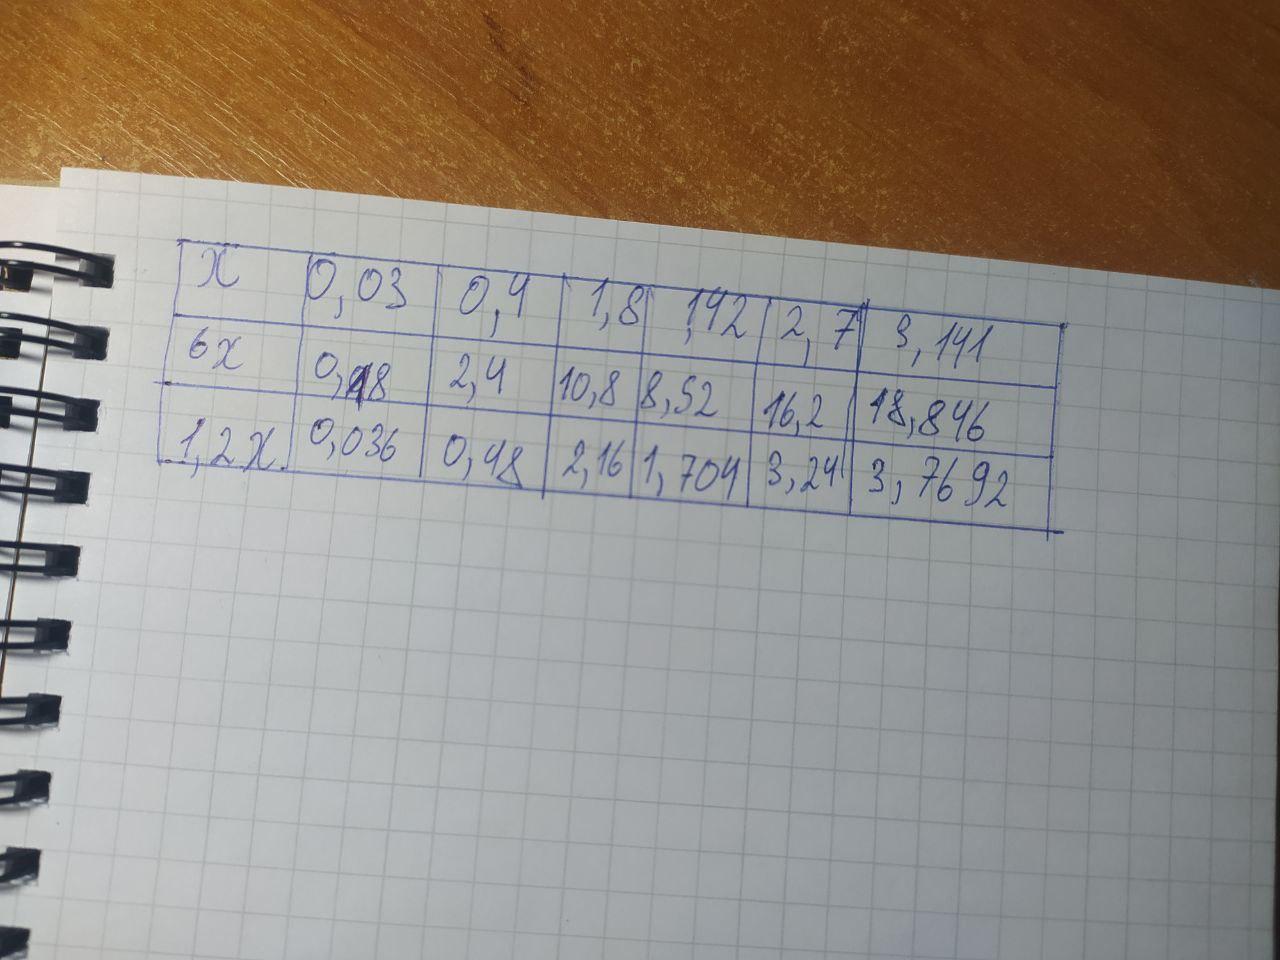 x 0,03 0,4 1,8 1,42 2,7 3,141
6x 0,18 2,4 10,8 8,52 16,2 18,846
1,2x 0,036 0,48 2,16 1,704 3,24 3,7692